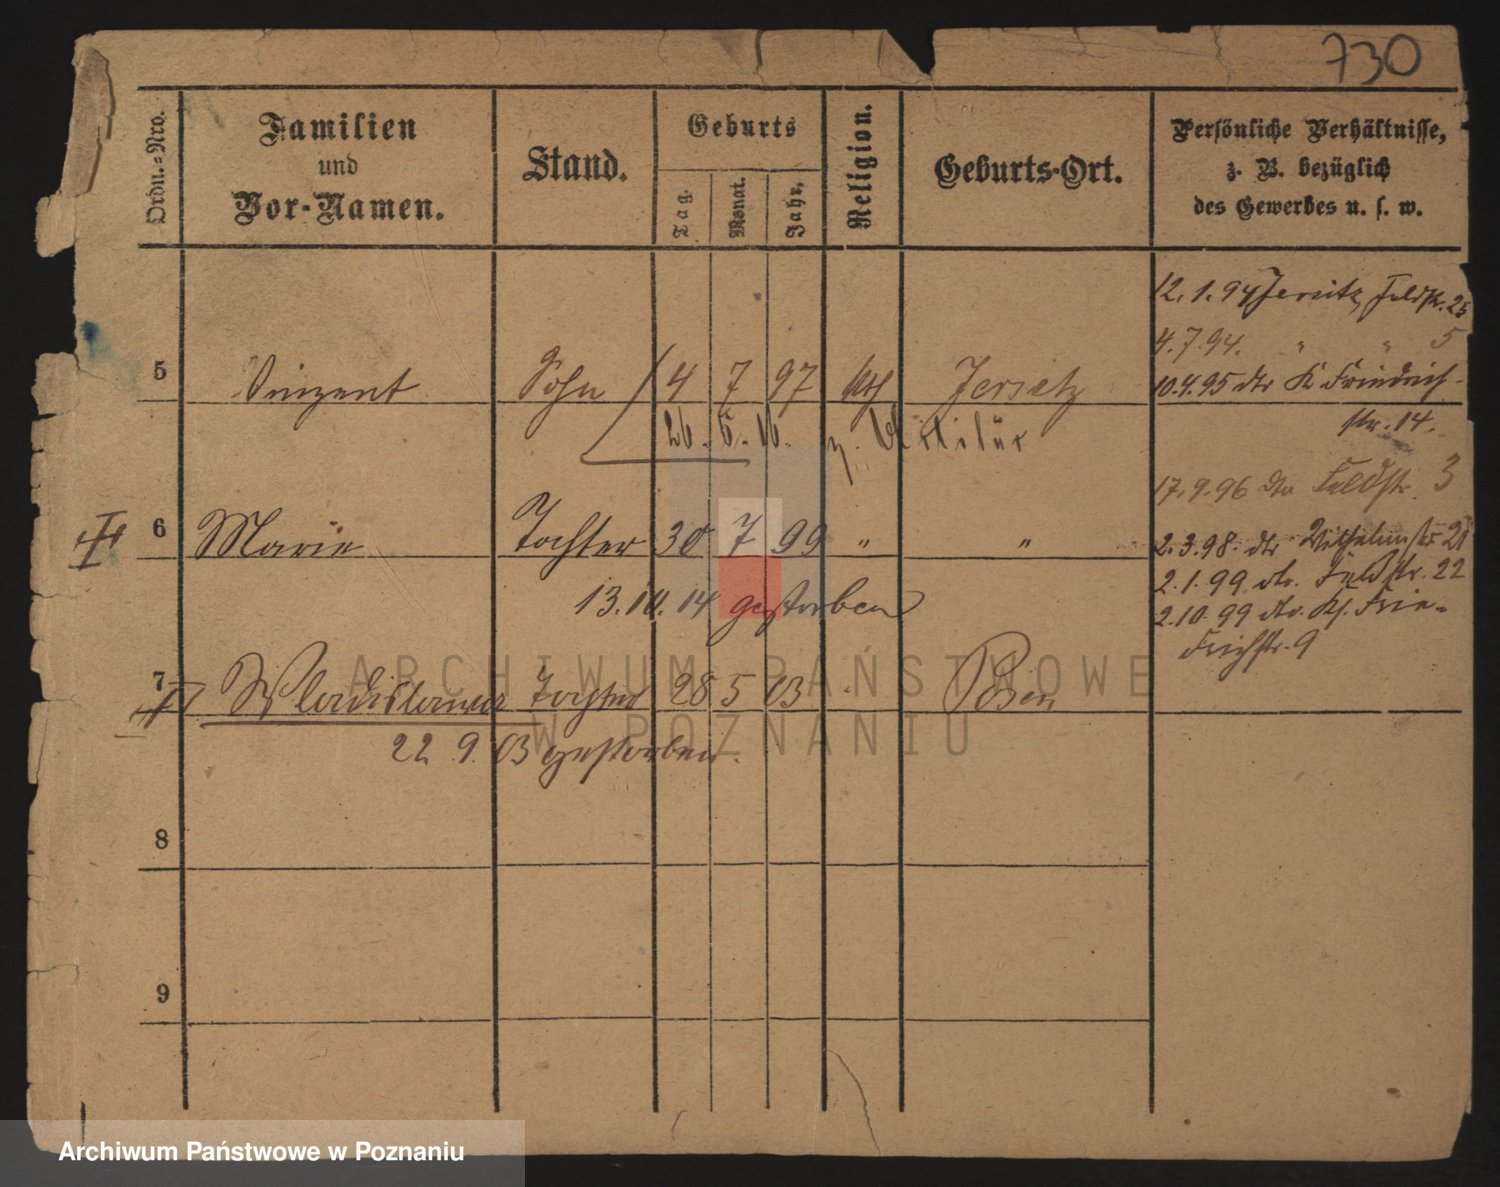 730
Ordn.-Nro.
Familien
und
Vor-Namen.
Stand.
Geburts
Tag.
Monat.
Jahr.
Religion.
Geburts-Ort.
Persönliche Verhältnisse,
z. B. bezüglich
des Gewerbes u. s. w.
12.1.94 Jersitz, Feldstr. 25
4.7.94. " " 5
5 Vinzent Sohn 4 7 97 kth Jersitz
10.4.95 dto K. Friedrich-
str. 14.
26. 6. 16. z.
17.9.96 dto Feldstr. 3
6 Marie Tochter 30 7 99 " "
2.3.98. dto Wilhelmstr 21
2.1.99 dto. Feldstr. 22
13.10.14 gestorben
2.10.99 dto. Kl. Frie-
drichstr. 9
7 Wladislawa Tochter 28 5 03 Posen
22 9. 03 gestorben.
8
9
ARCHIWUM PAŃSTWOWE
W POZNANIU
Archiwum Państwowe w Poznaniu